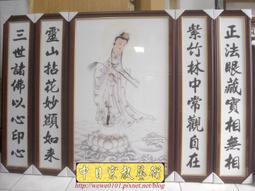 正法眼藏實相無相
紫竹林中常觀自在
靈山拈花妙顯如來
三世諸佛以心印心
中日宗教藝術